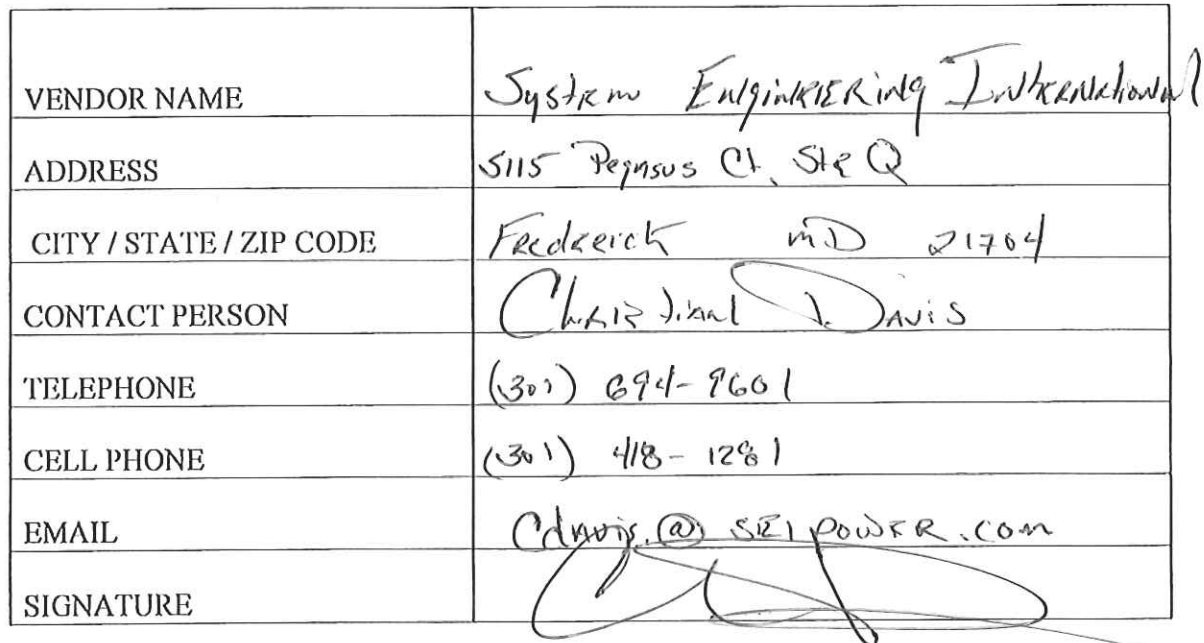 VENDOR NAME System Engineering International
ADDRESS 5115 Pegasus Ct. Ste Q
CITY / STATE / ZIP CODE Frederick MD 21704
CONTACT PERSON Christian J. Davis
TELEPHONE (301) 694-9601
CELL PHONE (301) 418-1281
EMAIL Cdavis@SEIPOWER.com
SIGNATURE